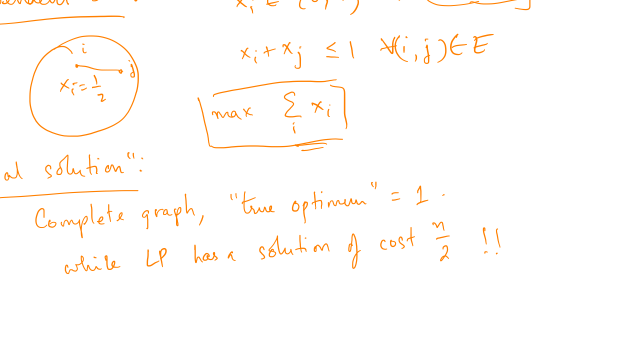 i
j
x_i = 1/2
x_i + x_j ≤ 1 ∀(i,j) ∈ E
max Σ_i x_i
al solution":
Complete graph, "true optimum" = 1.
while LP has a solution of cost n/2 !!